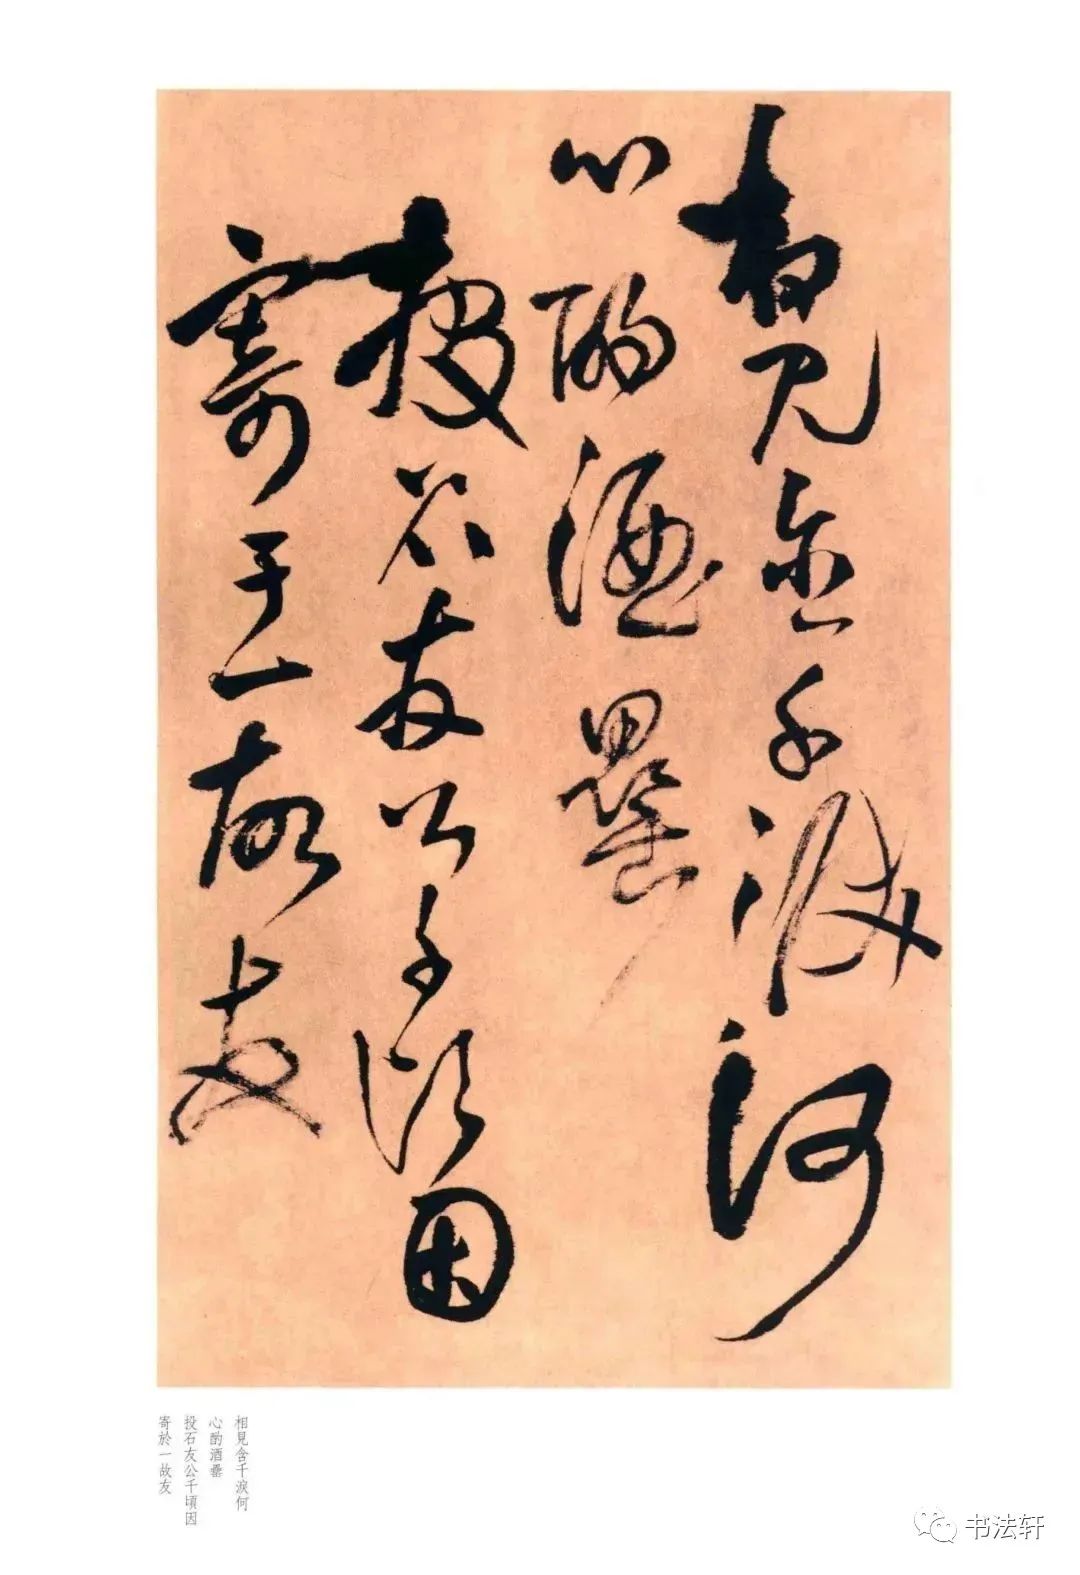 相見含千淚何
心酌酒罍
投石友公千頃因
寄於一故友
相見含千淚何
心酌酒罍
投石友公千頃因
寄於一故友
书法轩